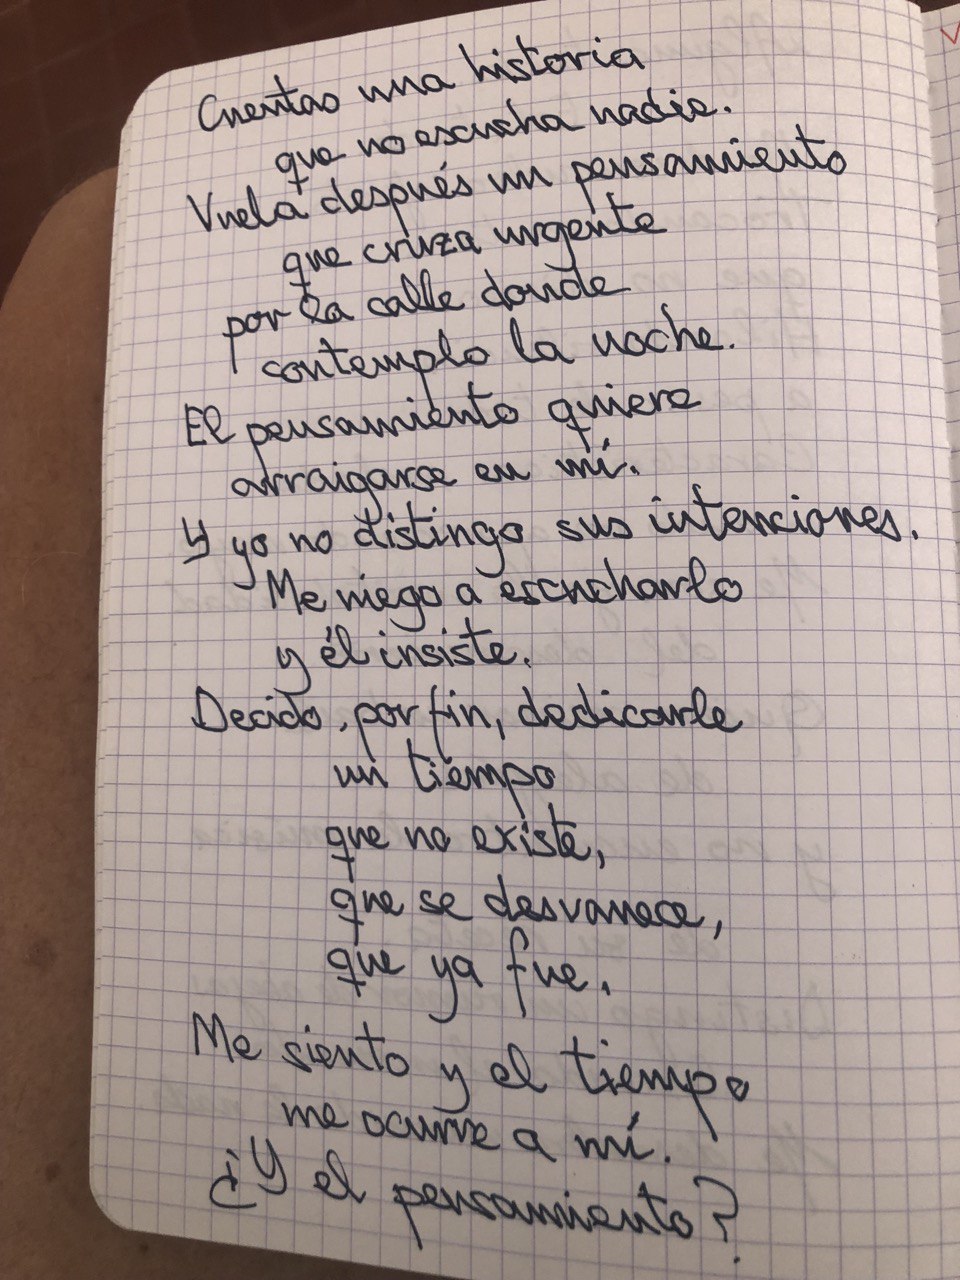 Cuentas una historia
que no escucha nadie.
Vuela después un pensamiento
que cruza urgente
por la calle donde
contemplo la noche.
El pensamiento quiere
arraigarse en mí.
Y yo no distingo sus intenciones.
Me niego a escucharlo
y él insiste.
Decido, por fin, dedicarle
un tiempo
que no existe,
que se desvanece,
que ya fue.
Me siento y el tiempo
me ocurre a mí.
¿Y el pensamiento?